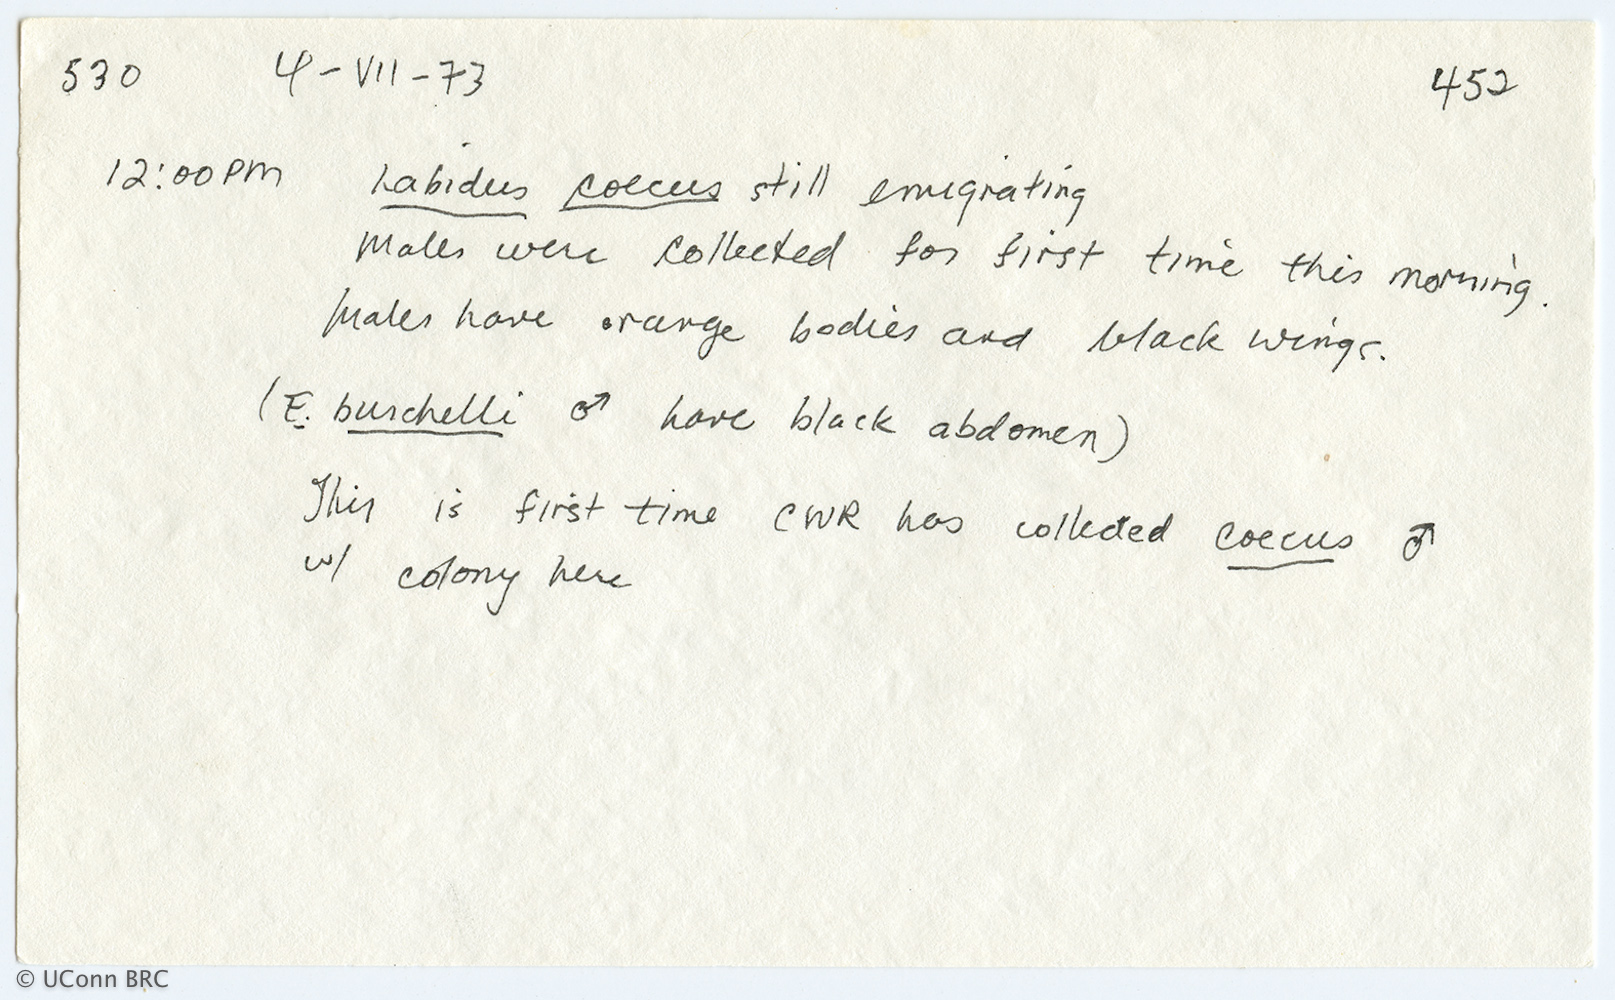 530 4-VII-73 452
12:00PM Labidus coecus still emigrating
Males were collected for first time this morning.
Males have orange bodies and black wings.
(E. burchelli ♂ have black abdomen)
This is first time CWR has collected coecus ♂
w/ colony here
© UConn BRC